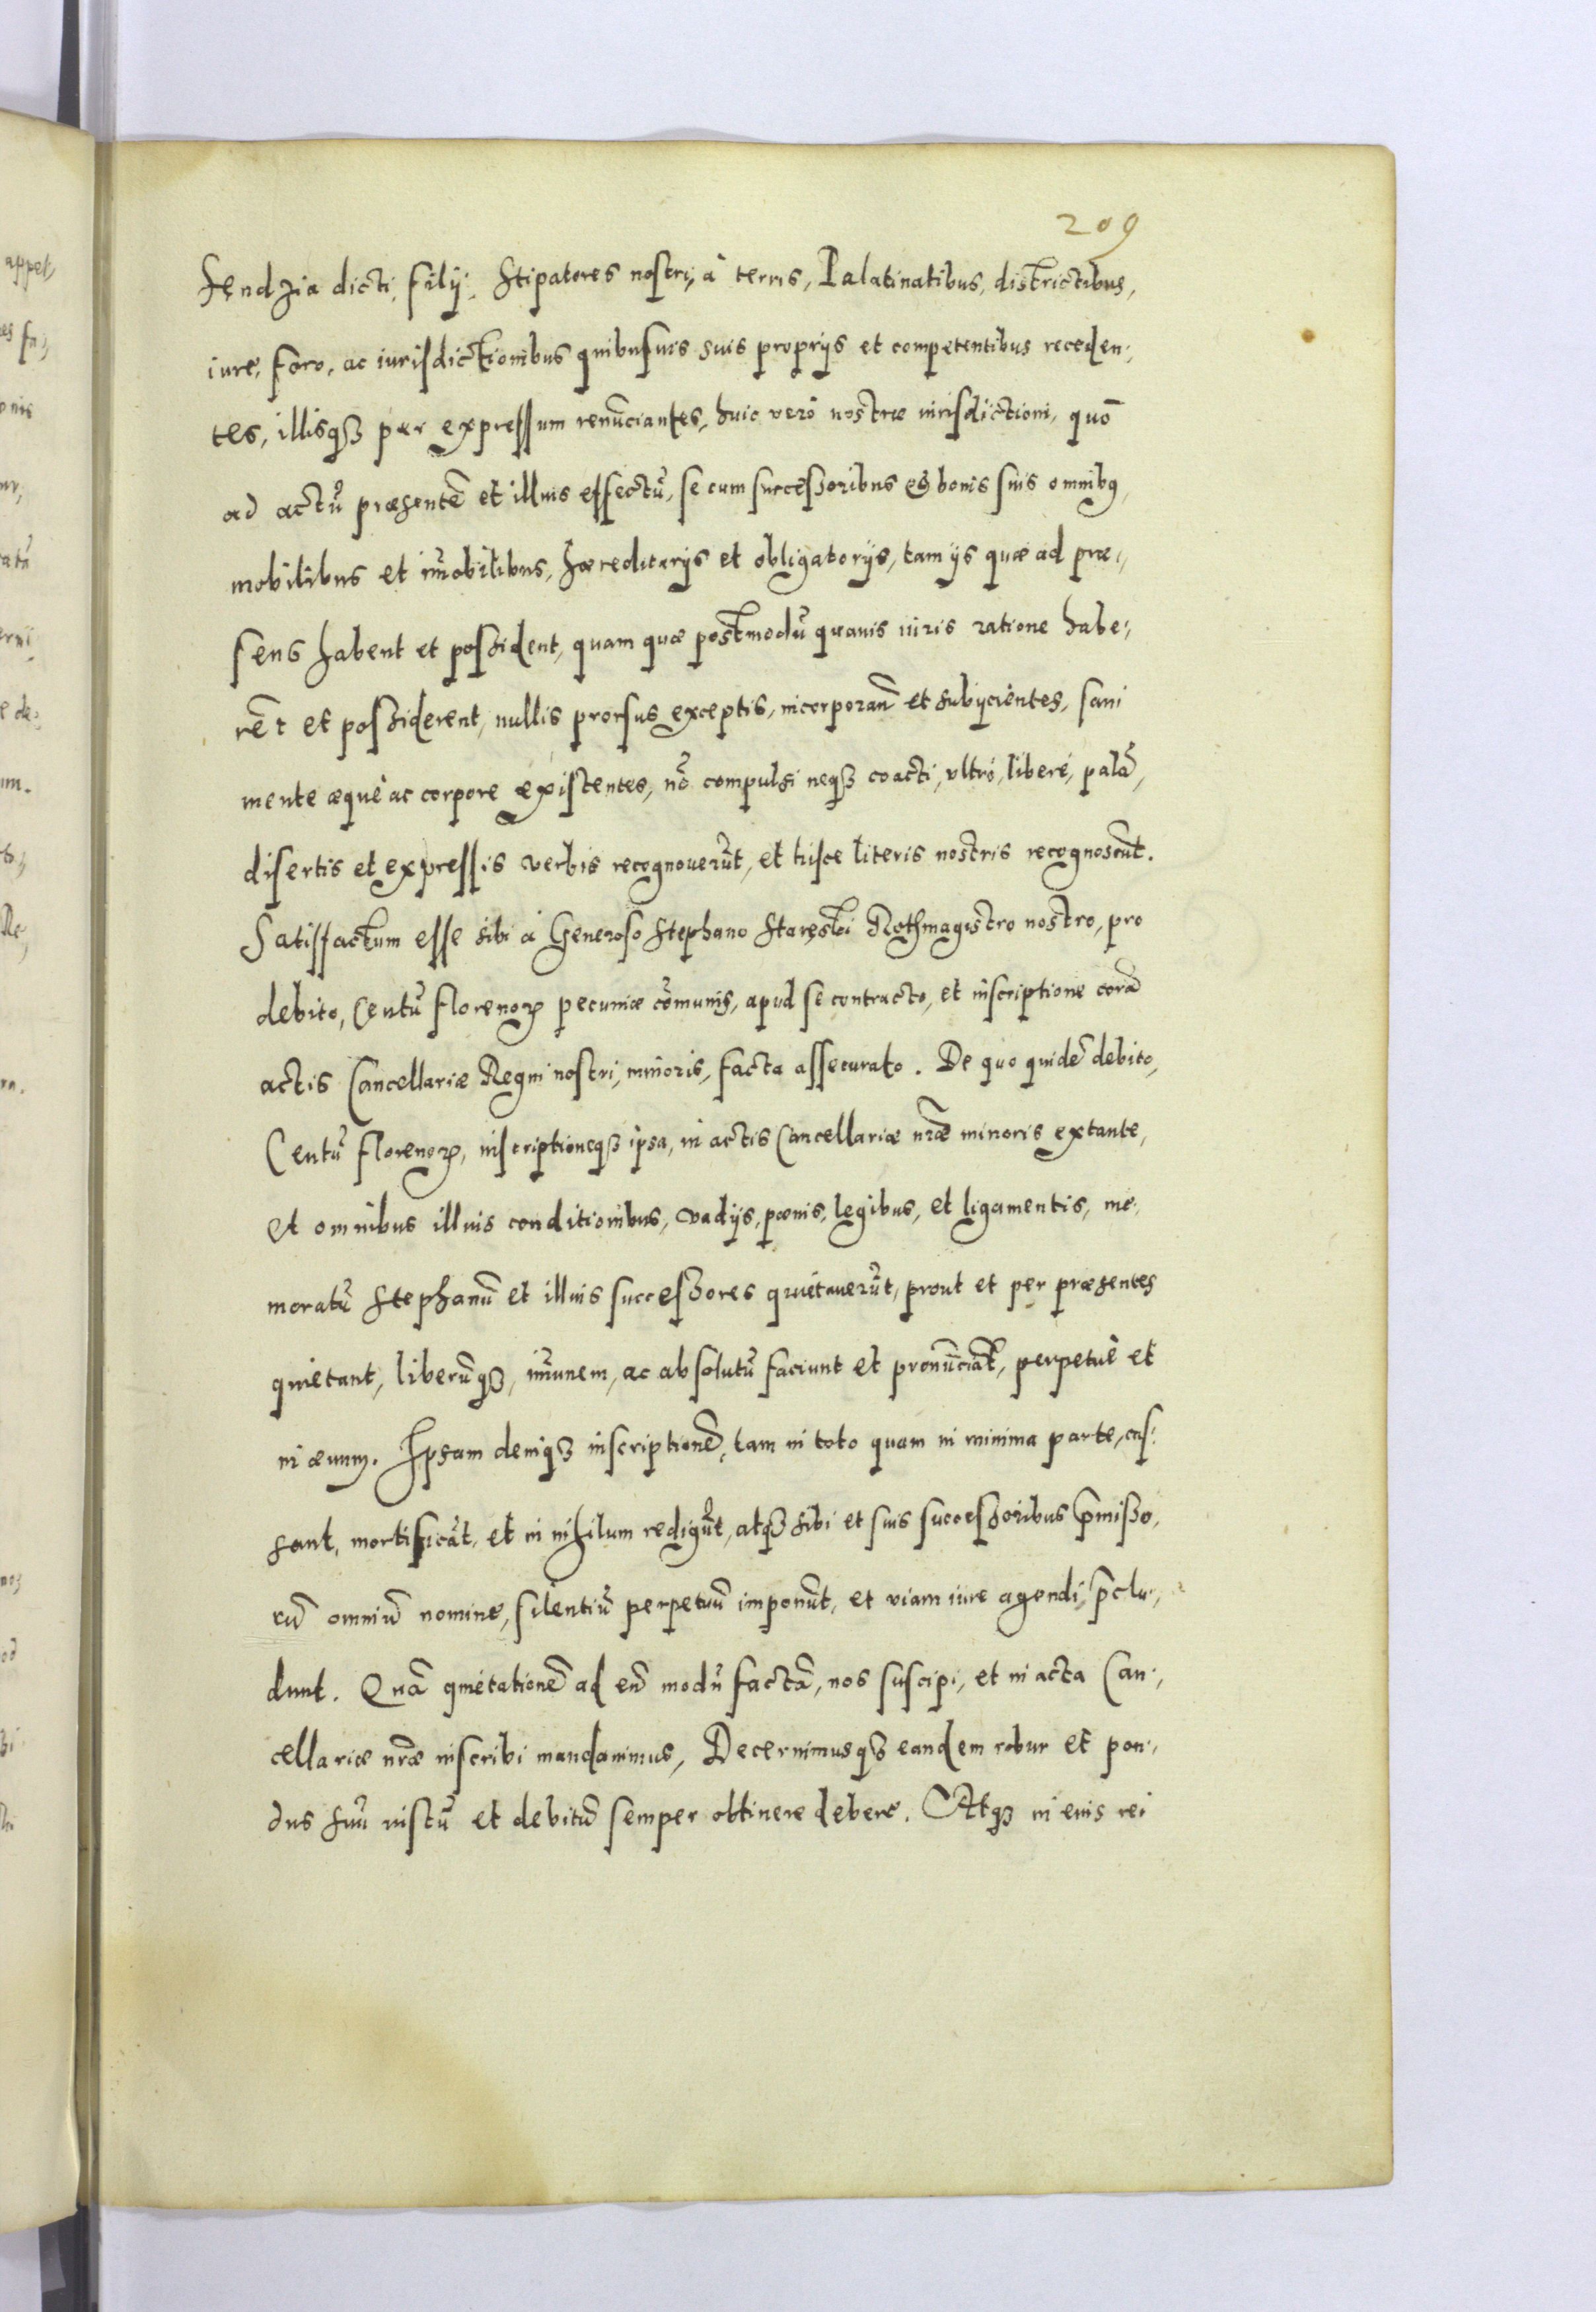 209
Sendzia dicti, filij, Stipatores nostri, à terris, Palatinatibus, districtibus,
iure, foro, ac iurisdictionibus quibusuis suis proprijs et competentibus receden,,
tes, illisqȝ per expressum renūciantes, huic verò nostræ iurisdictioni, quō
ad actū præsentē et illius effectū, se cum successoribus et bonis suis omnibꝯ,
mobilibus et īmobilibus, hæreditarijs et obligatorijs, tam ijs quæ ad præ,,
sens habent et possident, quam quæ postmodū quauis iuris ratione habe,,
rēt et possiderent, nullis prorsus exceptis, incorporan̄ et subijcientes, sani
mente æquè ac corpore existentes, nō compulsi neqȝ coacti, vltrò, liberè, palā,
disertis et expressis verbis recognouerūt, et hisce literis nostris recognoscūt.
Satisfactum esse sibi à Generoso Stephano Staręski Rothmagistro nostro, pro
debito, Centū florenoꝝ pecuniæ cōmunis, apud se contracto, et inscriptione corā
actis Cancellariæ Regni nostri, minoris, facta assecurato. De quo quidē debito,
Centū florenoꝝ, inscriptioneqȝ ipsa, in actis Cancellariæ nr̄æ minoris extante,
et omnibus illius conditionibus, vadijs, pœnis, legibus, et ligamentis, me,,
moratū Stephanū et illius successores quietauerūt, prout et per præsentes
quietant, liberūqȝ, īmunem, ac absolutū faciunt et pronūciāt, perpetuè et
in æuum. Ipsam deniqȝ inscriptionē, tam in toto quam in minima parte, cas,,
sant, mortificāt, et in nihilum redigūt, atqȝ sibi et suis successoribus p̄misso,,
rū omniū nomine, silentiū perpetuū imponūt, et viam iure agendi, p̄clu,,
dunt. Quā quietationē ad eū modū factā, nos suscipi, et in acta Can,,
cellariæ nr̄æ inscribi mandauimus, Decernimusqȝ eandem robur et pon,,
dus suū iustū et debitū semper obtinere debere. Atqȝ in eius rei